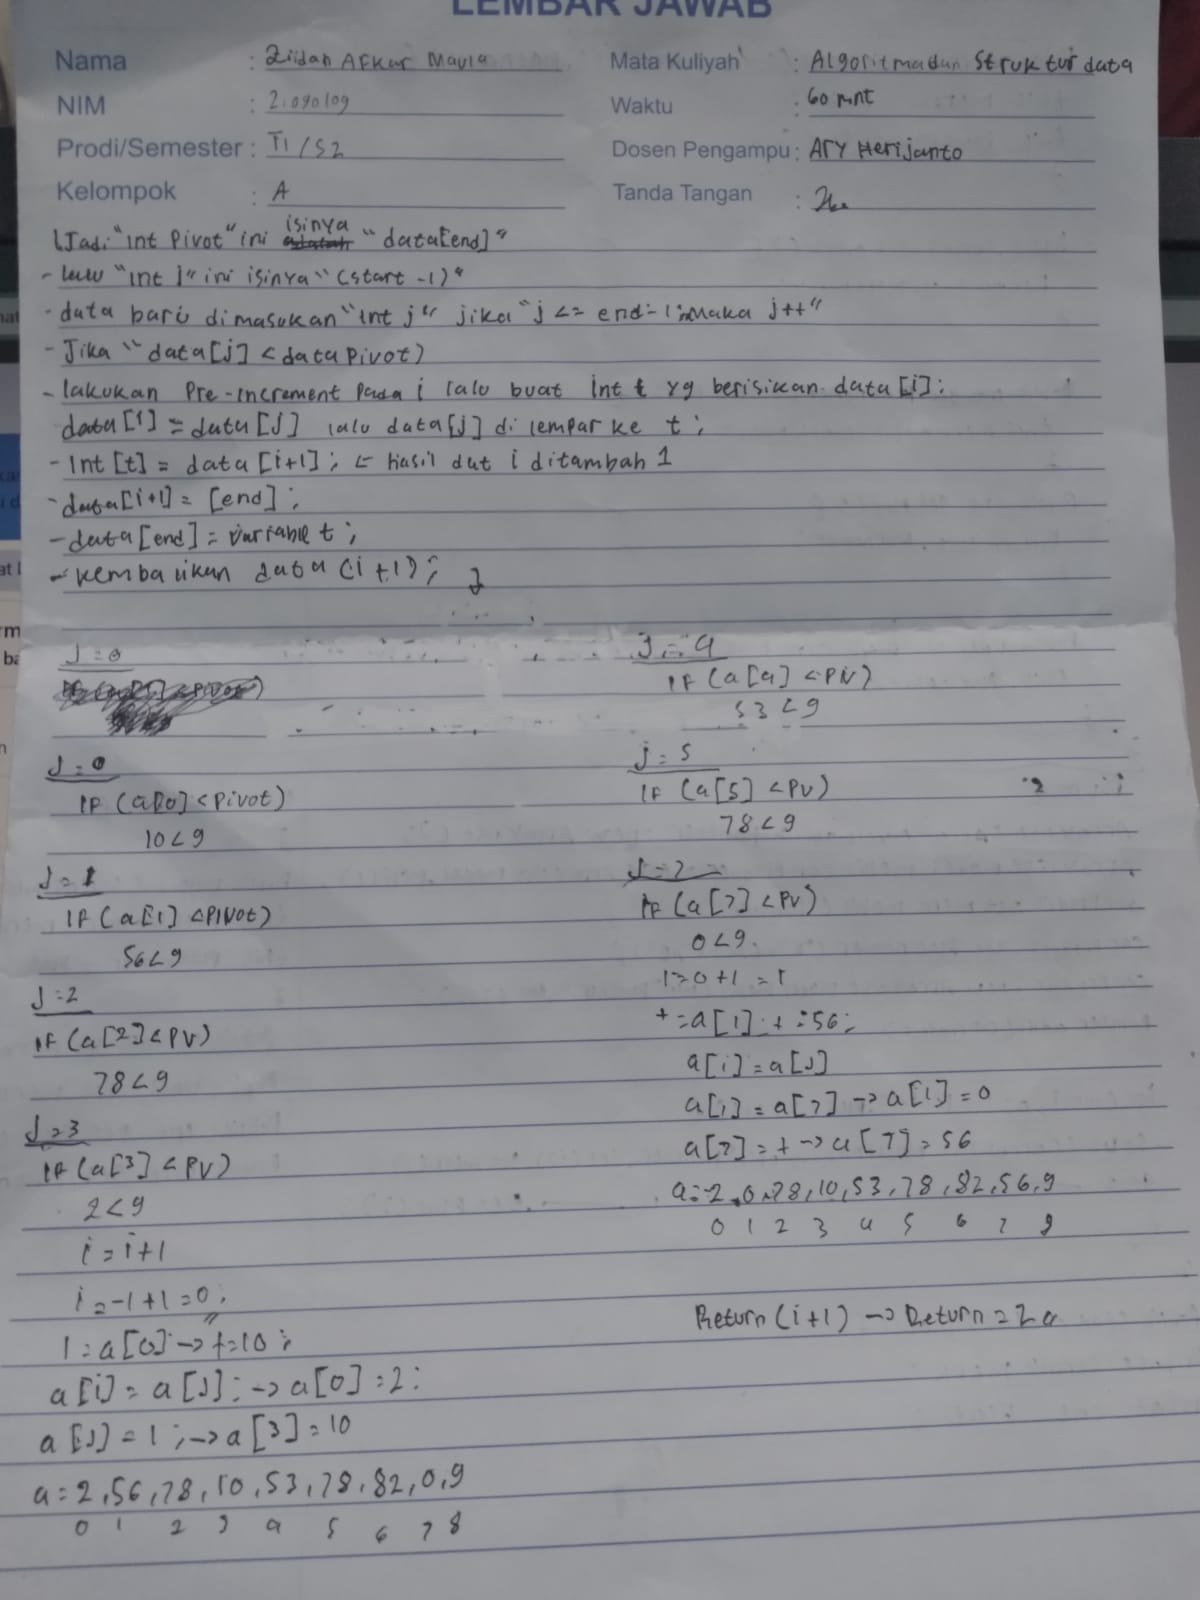 LEMBAR JAWAB
Nama : Ziidan Afkar Maula
Mata Kuliyah : Algoritma dan Struktur data
NIM : 21090109
Waktu : 60 mnt
Prodi/Semester : TI / S2
Dosen Pengampu : Ary Herijanto
Kelompok : A
Tanda Tangan :
Jadi "int Pivot" ini isinya "data[end]"
- lalu "int i" ini isinya "(start -1)"
- data baru dimasukan "int j" jika "j <= end-1; Maka j++"
- Jika "data[j] < data Pivot)
- lakukan Pre-increment pada i lalu buat int t yg berisikan data[i];
data[i] = data[j] lalu data[j] di lempar ke t;
- Int [t] = data [i+1]; ← hasil dat i ditambah 1
- data[i+1] = [end];
- data[end] = variable t;
- kembalikan data (i+1); }
J = 0
J = 0
IF (a[0] < Pivot)
10 < 9
J = 1
IF (a[1] < PIVot)
56 < 9
J = 2
IF (a[2] < PV)
78 < 9
J = 3
IF (a[3] < PV)
2 < 9
i = i+1
i = -1+1 = 0;
1 = a[0] -> t=10;
a[i] = a[J]; -> a[0] = 2;
a[J] = 1; -> a[3] = 10
a = 2, 56, 78, 10, 53, 78, 82, 0, 9
0 1 2 3 4 5 6 7 8
J = 4
IF (a[4] < PV)
53 < 9
j = 5
IF (a[5] < PV)
78 < 9
J = 7
IF (a[7] < PV)
0 < 9.
i = 0+1 = 1
t = a[1] t = 56;
a[i] = a[J]
a[i] = a[7] -> a[1] = 0
a[7] = t -> a[7] = 56
a = 2, 0, 78, 10, 53, 78, 82, 56, 9
0 1 2 3 4 5 6 7 8
Return (i+1) -> Return = 2